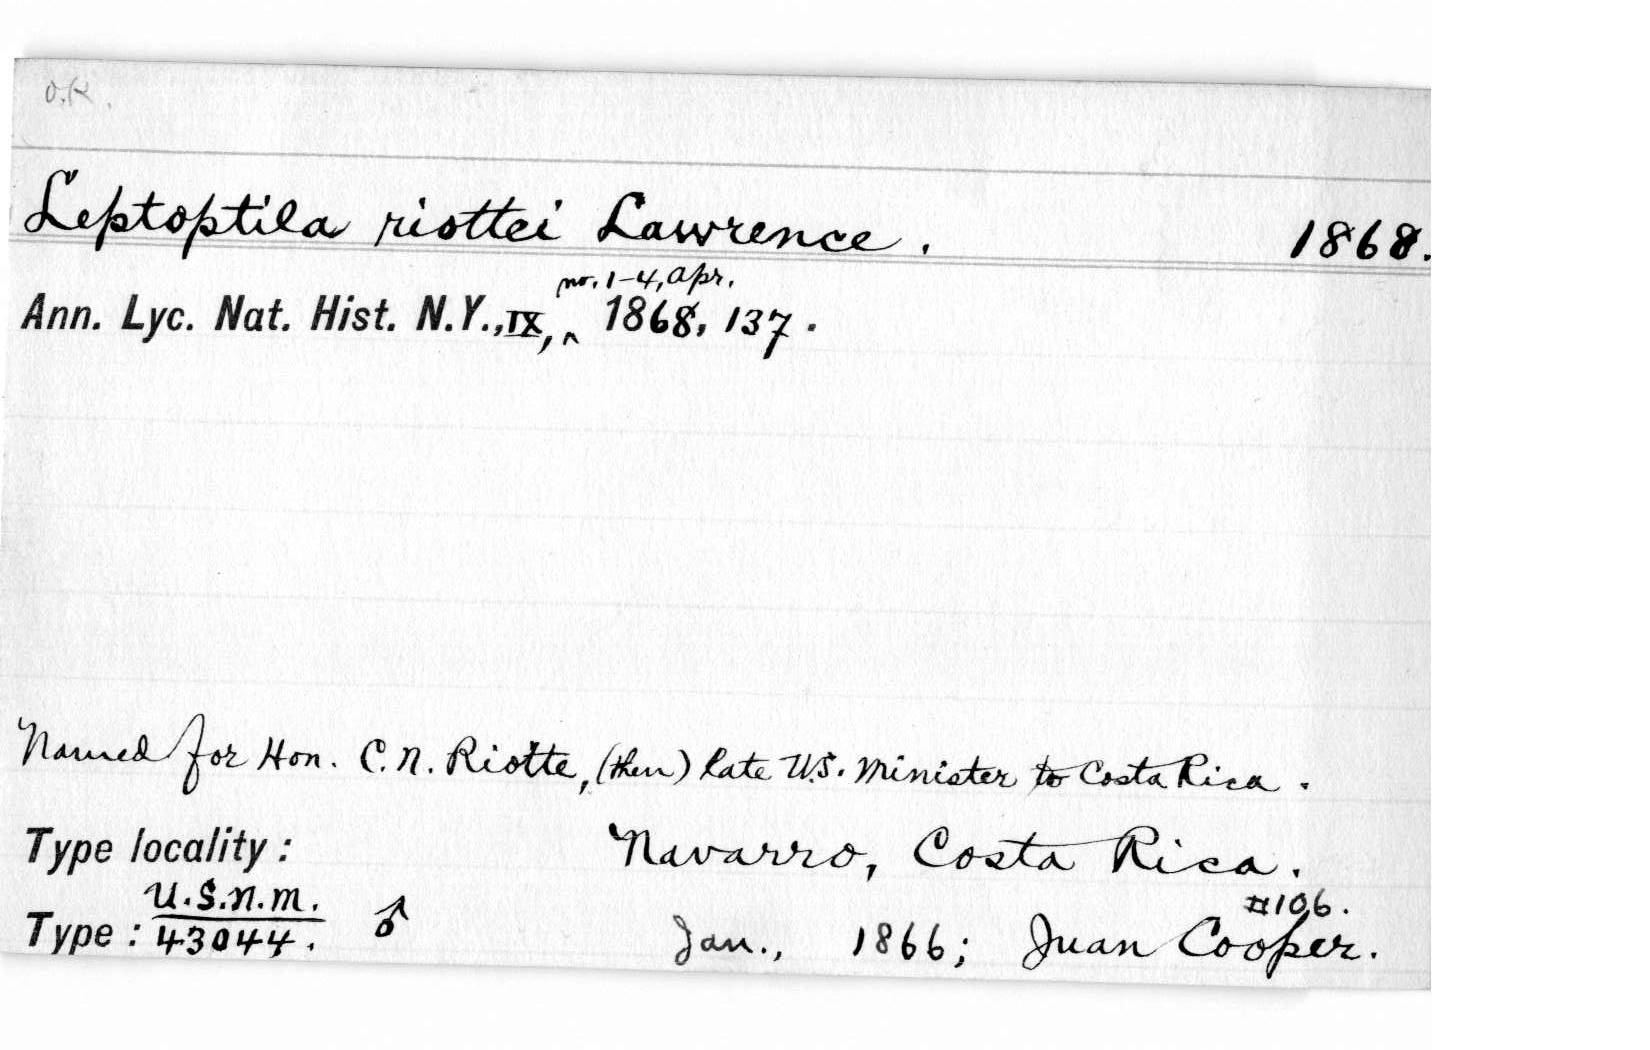 O.K.
Leptoptila riottei Lawrence. 1868.
no. 1-4, Apr.
Ann. Lyc. Nat. Hist. N.Y., IX, ^ 1868, 137.
Named for Hon. C. N. Riotte, (then) late U.S. Minister to Costa Rica.
Type locality: Navarro, Costa Rica.
U.S.N.M. #106.
Type: 43044. ♂ Jan., 1866; Juan Cooper.